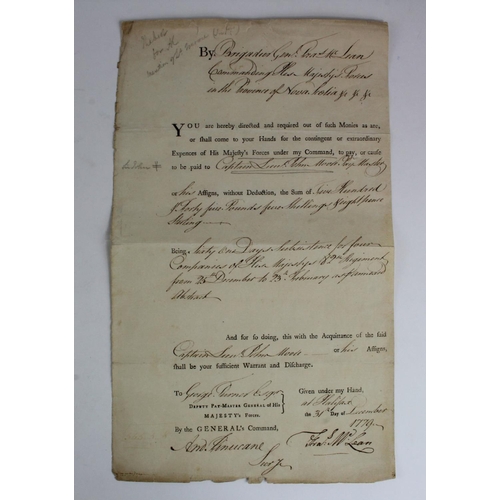 By Brigadier Genl. Frans. McLean
Commanding His Majesty's Forces
in the Province of Nova Scotia &c &c &c
YOU are hereby directed and required out of such Monies as are,
or shall come to your Hands for the contingent or extraordinary
Expences of His Majesty's Forces under my Command, to pay, or cause
to be paid to Captain Lieut. John Moore Pay Master
or his Assigns, without Deduction, the Sum of Five Hundred
& Forty four Pounds four Shillings & eight pence
Sterling
Being Sixty One Days Subsistence for four
Companies of His Majesty's 82nd Regiment
from 25th December to 23d February as pr annexed
Abstract
And for so doing, this with the Acquittance of the said
Captain Lieut. John Moore or his Assigns,
shall be your sufficient Warrant and Discharge.
To George Esqr.
DEPUTY PAY-MASTER GENERAL of His
MAJESTY's Forces.
Given under my Hand,
at Halifax
the 31st Day of December
1779
By the GENERAL's Command,
And. Finucane
Secry
Frans. McLean